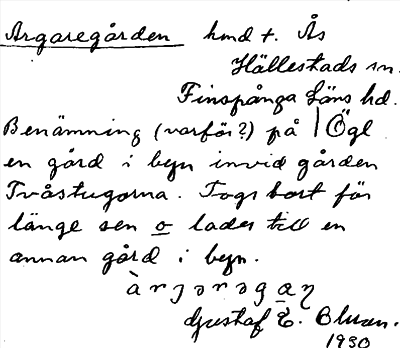 Argaregården hmd t. Ås
Hällestads sn.
Finspånga Läns hd.
Benämning (varför?) på | Ögl
en gård i byn invid gården
Tvåstugorna. Togs bort för
länge sen o lades till en
annan gård i byn.
Gustaf E.
1930